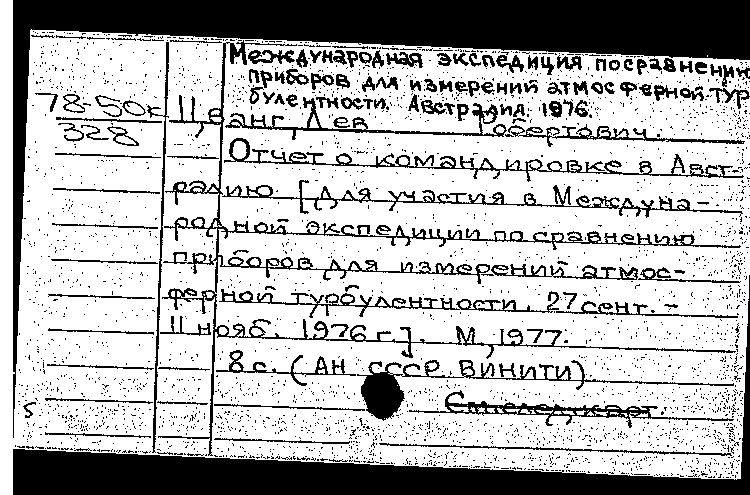 Международная экспедиция посравнению
приборов для измерений атмосферной тур
булентности. Австралия. 1976.
78-50к
328
Цванг, Лев Робертович.
Отчет о командировке в Авст-
ралию. [Для участия в Междуна-
родной экспедиции по сравнению
приборов для измерений атмос-
ферной турбулентности. 27 сент. -
11 нояб. 1976 г.]. М., 1977.
8 с. (АН СССР. ВИНИТИ).
5